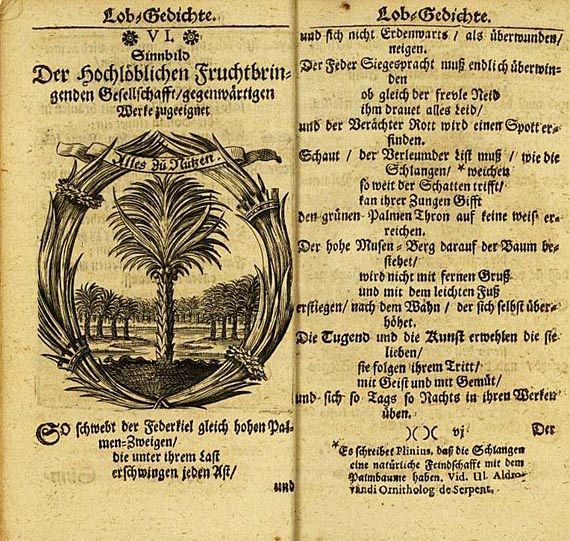 Lob-Gedichte.
❀ VI. ❀
Sinnbild
Der Hochlöblichen Fruchtbrin-
genden Gesellschafft/gegenwärtigen
Werke zugeeignet
Alles Zu Nutzen.
SO schwebt der Federkiel gleich hohen Pal-
men-Zweigen/
die unter ihrem Last
erschwingen jeden Ast/
und
Lob-Gedichte.
und sich nicht Erdenwarts / als überwunden/
neigen.
Der Feder Siegespracht muß endlich überwin-
den
ob gleich der frevle Neid
ihm drauet alles Leid/
und der Verächter Rott wird einen Spott er-
finden.
Schaut / der Verleumder List muß / wie die
Schlangen/ *weichen
so weit der Schatten trifft/
kan ihrer Zungen Gifft
den grünen Palmen Thron auf keine weis' er-
reichen.
Der hohe Musen-Berg darauf der Baum be-
stehet/
wird nicht mit fernen Gruß
und mit dem leichten Fuß
erstiegen/ nach dem Wahn / der sich selbst über-
höhet.
Die Tugend und die Kunst erwehlen die sie
lieben/
sie folgen ihrem Tritt/
mit Geist und mit Gemüt/
und sich so Tags so Nachts in ihren Werken
üben.
)( )( vj Der
*Es schreibet Plinius, daß die Schlangen
eine natürliche Feindschafft mit dem
Palmbaume haben. Vid. Ul. Aldro-
vandi Ornitholog de Serpent.